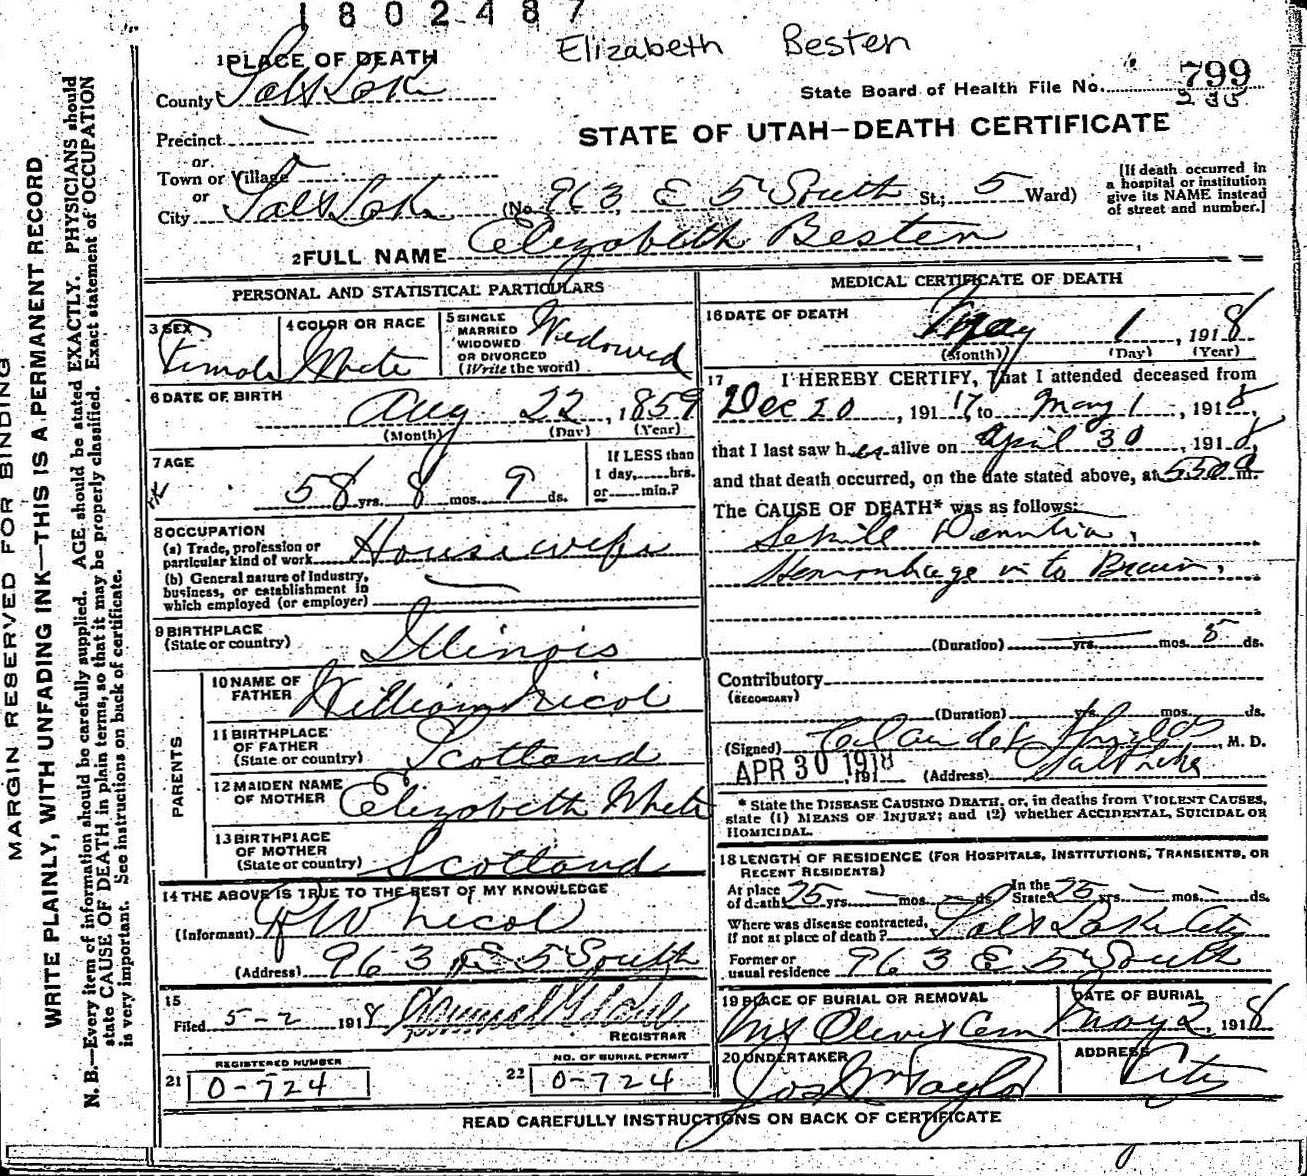 1802487
Elizabeth Besten
1 PLACE OF DEATH
County Salt Lake
State Board of Health File No. 799
Precinct
STATE OF UTAH—DEATH CERTIFICATE
or
Town or Village
or
City Salt Lake (No. 963 E 5 South St.; 5 Ward)
[If death occurred in
a hospital or institution
give its NAME instead
of street and number.]
2 FULL NAME Elizabeth Besten
PERSONAL AND STATISTICAL PARTICULARS
3 SEX
Female
4 COLOR OR RACE
White
5 SINGLE
MARRIED
WIDOWED
OR DIVORCED
(Write the word)
Widowed
6 DATE OF BIRTH
Aug 22, 1859
(Month) (Day) (Year)
7 AGE
58 yrs. 8 mos. 9 ds.
If LESS than
1 day, hrs.
or min.?
8 OCCUPATION
(a) Trade, profession or
particular kind of work Housewife
(b) General nature of Industry,
business, or establishment in
which employed (or employer)
9 BIRTHPLACE
(State or country) Illinois
PARENTS
10 NAME OF
FATHER William Nicol
11 BIRTHPLACE
OF FATHER
(State or country) Scotland
12 MAIDEN NAME
OF MOTHER Elizabeth White
13 BIRTHPLACE
OF MOTHER
(State or country) Scotland
14 THE ABOVE IS TRUE TO THE BEST OF MY KNOWLEDGE
(Informant) W Nicol
(Address) 963 E 5 South
15
Filed 5-2 1918
REGISTRAR
REGISTERED NUMBER
21 0-724
NO. OF BURIAL PERMIT
22 0-724
MEDICAL CERTIFICATE OF DEATH
16 DATE OF DEATH
May 1, 1918
(Month) (Day) (Year)
17 I HEREBY CERTIFY, That I attended deceased from
Dec 20, 1917, to May 1, 1918,
that I last saw her alive on April 30, 1918,
and that death occurred, on the date stated above, at 550 a m.
The CAUSE OF DEATH* was as follows:
Senile Dementia,
Hemorrhage in to Brain.
(Duration) yrs. mos. 5 ds.
Contributory
(SECONDARY)
(Duration) yrs. mos. ds.
(Signed) Shields, M. D.
APR 30 1918 191 (Address) Salt Lake
* State the DISEASE CAUSING DEATH, or, in deaths from VIOLENT CAUSES,
state (1) MEANS OF INJURY; and (2) whether ACCIDENTAL, SUICIDAL OR
HOMICIDAL.
18 LENGTH OF RESIDENCE (FOR HOSPITALS, INSTITUTIONS, TRANSIENTS, OR
RECENT RESIDENTS)
At place
of death 25 yrs. mos. ds. In the
State 25 yrs. mos. ds.
Where was disease contracted,
if not at place of death? Salt Lake City
Former or
usual residence 963 E 5 South
19 PLACE OF BURIAL OR REMOVAL
Mt Olivet Cem
DATE OF BURIAL
May 2, 1918
20 UNDERTAKER
Jos Wm Taylor
ADDRESS
City
READ CAREFULLY INSTRUCTIONS ON BACK OF CERTIFICATE
MARGIN RESERVED FOR BINDING
WRITE PLAINLY, WITH UNFADING INK—THIS IS A PERMANENT RECORD
N. B.—Every item of information should be carefully supplied. AGE should be stated EXACTLY. PHYSICIANS should
state CAUSE OF DEATH in plain terms, so that it may be properly classified. Exact statement of OCCUPATION
is very important. See instructions on back of certificate.